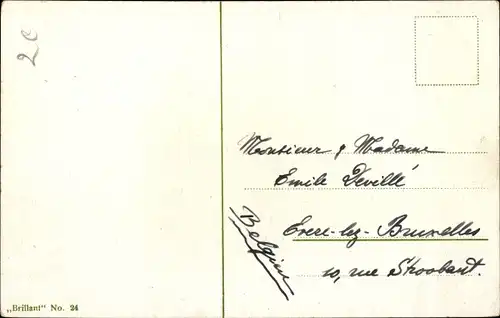 2c
Monsieur & Madame
Emile Devillé
Evere-lez-Bruxelles
10, rue Stroobant.
Belgien
„Brillant" No. 24